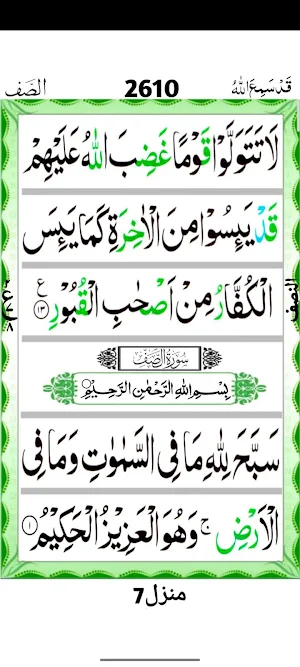 الصَّف 2610 قَدْ سَمِعَ اللهُ
لَا تَتَوَلَّوْا قَوْمًا غَضِبَ اللهُ عَلَيْهِمْ
قَدْ يَئِسُوْا مِنَ الْاٰخِرَةِ كَمَا يَئِسَ
الْكُفَّارُ مِنْ اَصْحٰبِ الْقُبُوْرِ ع ۱۳
سُوْرَةُ الصَّفِّ
بِسْمِ اللهِ الرَّحْمٰنِ الرَّحِيْمِ
سَبَّحَ لِلّٰهِ مَا فِى السَّمٰوٰتِ وَمَا فِى
الْاَرْضِ ۚ وَهُوَ الْعَزِيْزُ الْحَكِيْمُ ۱
النصف
منزل7